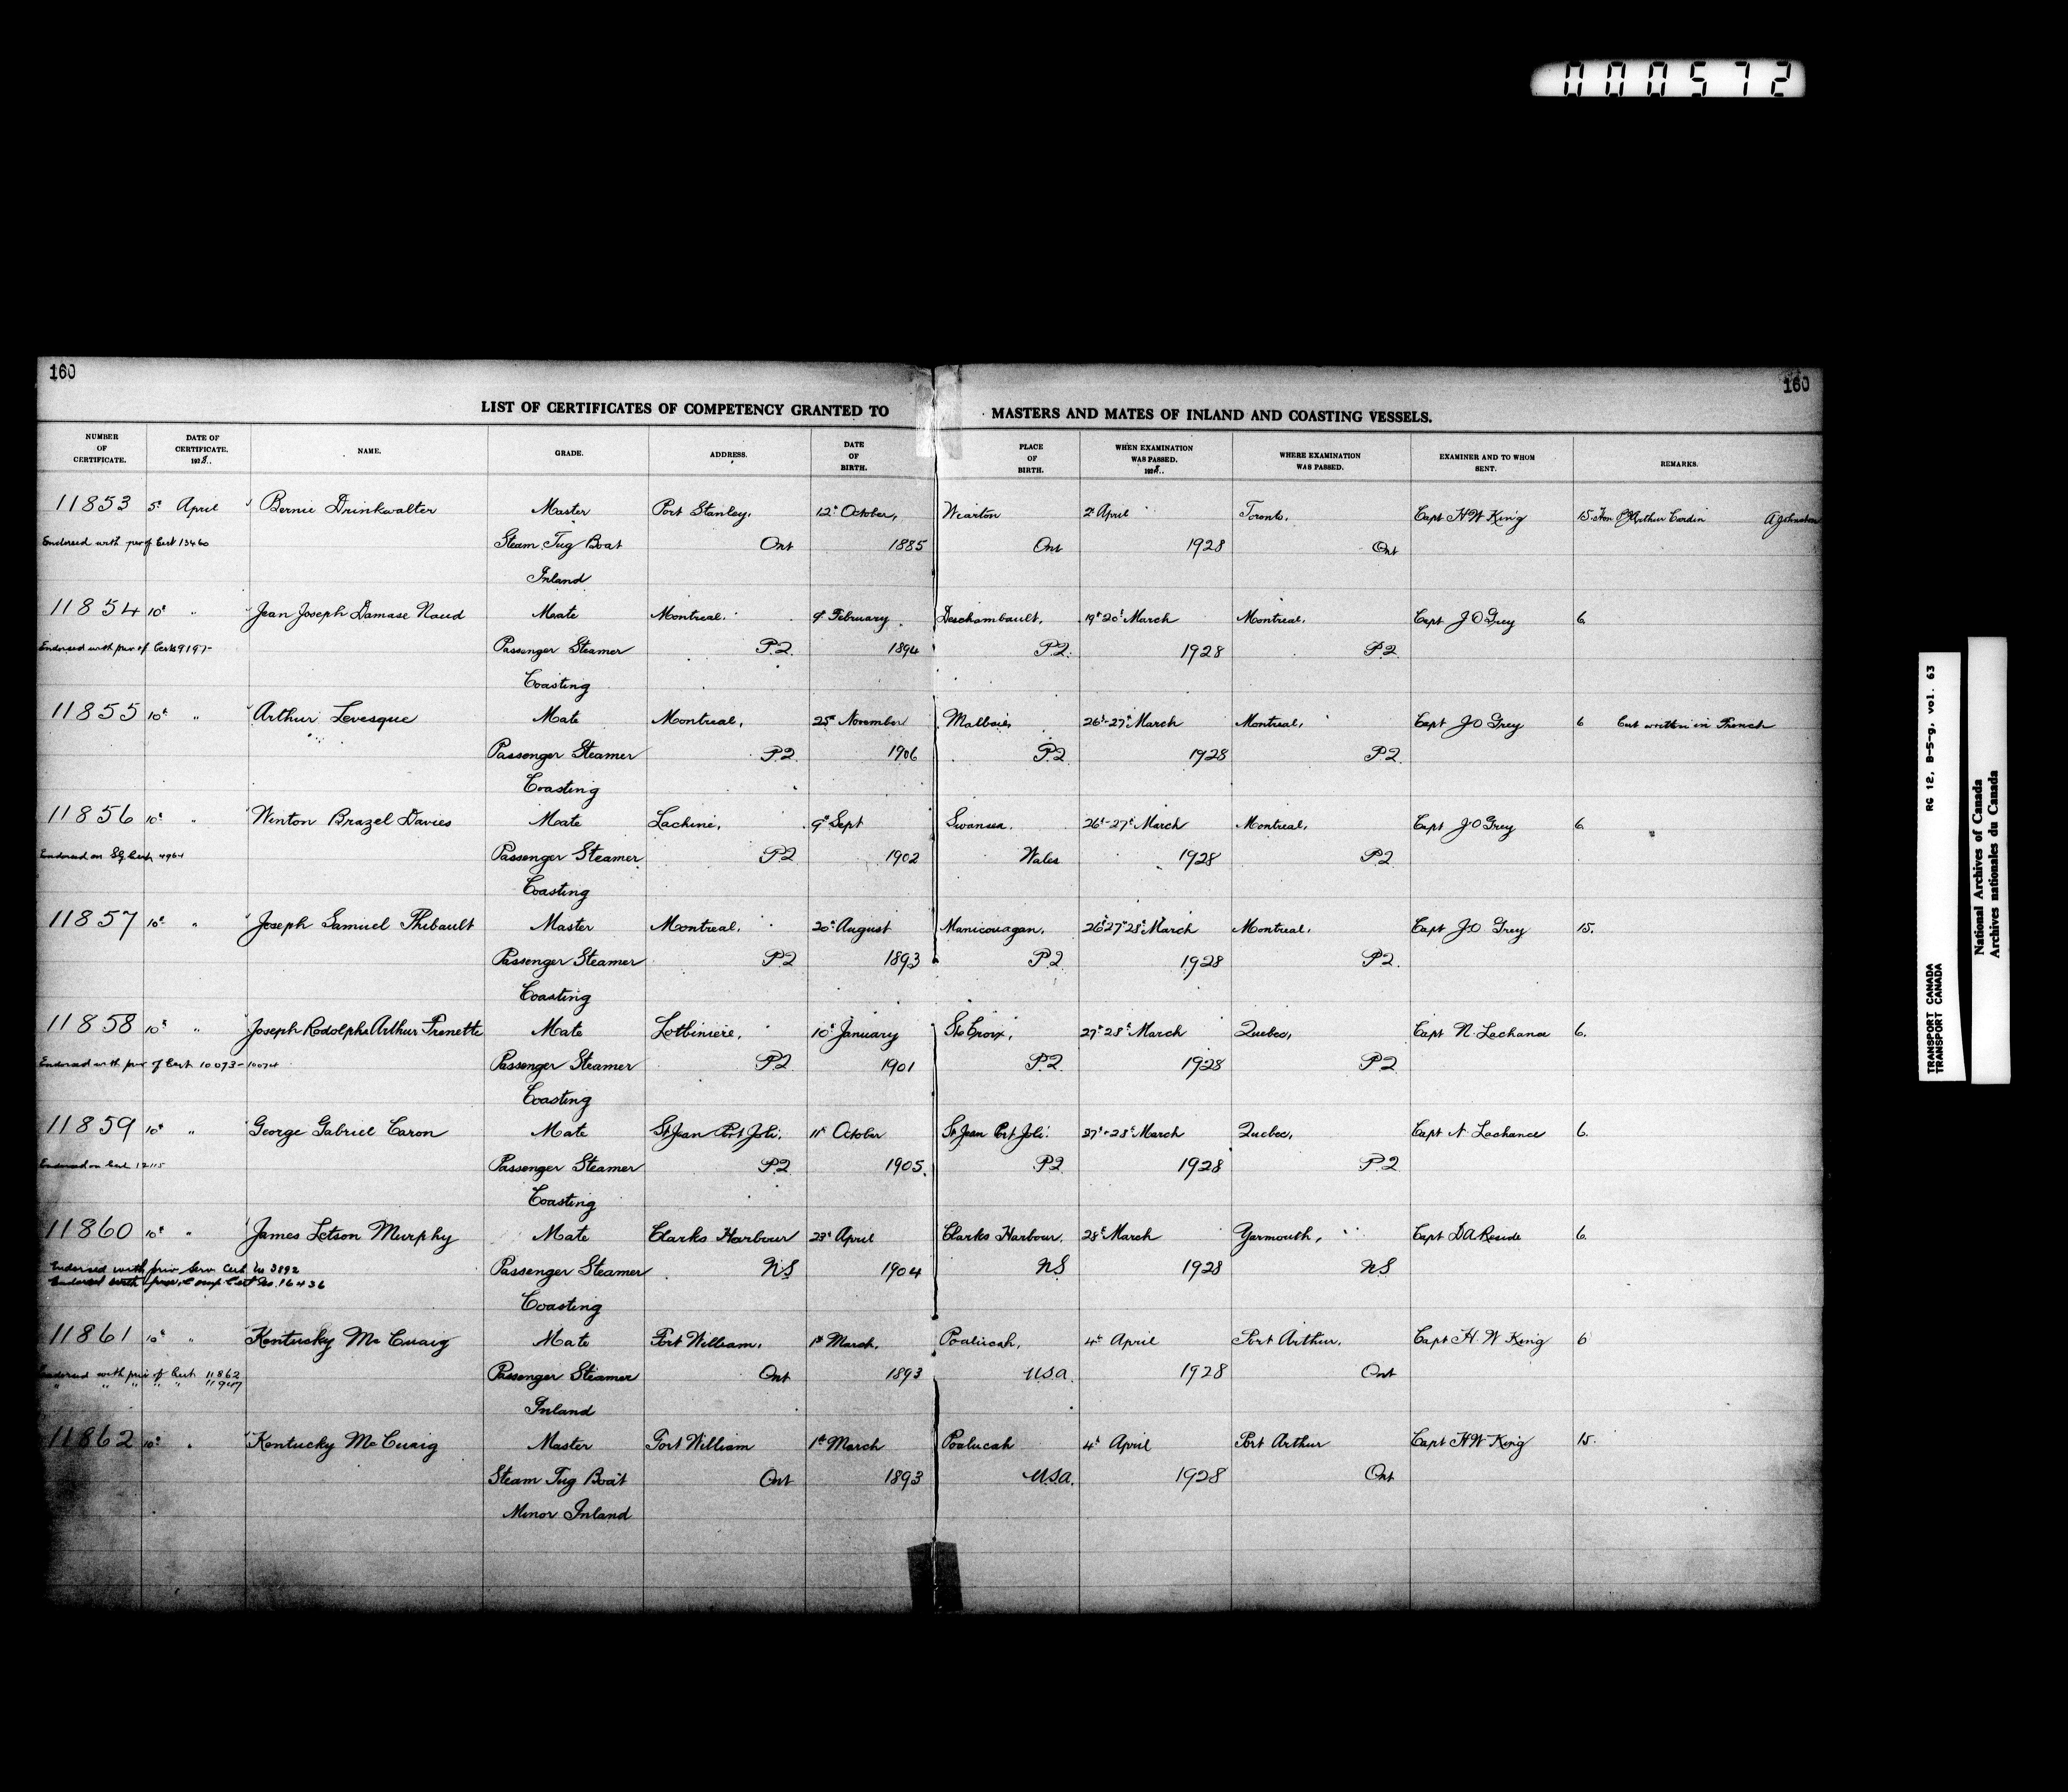 000572
160
160
LIST OF CERTIFICATES OF COMPETENCY GRANTED TO MASTERS AND MATES OF INLAND AND COASTING VESSELS.
NUMBER OF CERTIFICATE. DATE OF CERTIFICATE. 1928.. NAME. GRADE. ADDRESS. DATE OF BIRTH. PLACE OF BIRTH. WHEN EXAMINATION WAS PASSED. 1928.. WHERE EXAMINATION WAS PASSED. EXAMINER AND TO WHOM SENT. REMARKS.
11853 5th April Bernie Drinkwalter Master Port Stanley, 12th October, Wiarton 2d April Toronto, Capt H W King 15. Hon P J Arthur Cardin A Johnston
Endorsed with priv of Cert 13460 Steam Tug Boat Ont 1885 Ont 1928 Ont
Inland
11854 10th " Jean Joseph Damase Naud Mate Montreal. 9th February Deschambault, 19th 20th March Montreal, Capt J O Grey 6
Endorsed with priv of Cert 9197 Passenger Steamer P.Q. 1894 P.Q. 1928 P.Q.
Coasting
11855 10th " Arthur Levesque Mate Montreal, 25th November Malbaie, 26th-27th March Montreal, Capt J O Grey 6 Cert written in French
Passenger Steamer P.Q. 1906 P.Q. 1928 P.Q.
Coasting
11856 10th " Winton Brazel Davies Mate Lachine, 9th Sept Swansea. 26th-27th March Montreal, Capt J O Grey 6
Endorsed on SG Cert 4964 Passenger Steamer P.Q 1902 Wales 1928 P.Q
Coasting
11857 10th " Joseph Samuel Thibault Master Montreal, 20th August Manicouagan, 26th 27th 28th March Montreal, Capt J O Grey 15.
Passenger Steamer P.Q 1893 P.Q 1928 P.Q.
Coasting
11858 10th " Joseph Rodolphe Arthur Frenette Mate Lotbiniere, 10th January Ste Croix, 27th 28th March Quebec, Capt N. Lachance 6.
Endorsed with priv of Cert 10073-10074 Passenger Steamer P.Q 1901 P.Q. 1928 P.Q
Coasting
11859 10th " George Gabriel Caron Mate St Jean Port Joli. 11th October St Jean Port Joli. 27th-28th March Quebec, Capt N Lachance 6.
Endorsed on Cert 12115 Passenger Steamer P.Q 1905. P.Q 1928 P.Q
Coasting
11860 10th " James Letson Murphy Mate Clarks Harbour 23d April Clarks Harbour, 28th March Yarmouth, Capt D A Reside 6
Endorsed with priv Serv Cert No 3892 Passenger Steamer N.S 1904 NS 1928 NS
Endorsed with priv. Comp Cert No. 16436
Coasting
11861 10th " Kentucky Mc Cuaig Mate Fort William, 1st March, Poalucah, 4th April Port Arthur, Capt H W King 6
Endorsed with priv of Cert 11862 Passenger Steamer Ont 1893 USA. 1928 Ont
" " " " " 11947
Inland
11862 10th " Kentucky Mc Cuaig Master Fort William 1st March Poalucah 4th April Port Arthur Capt H W King 15.
Steam Tug Boat Ont 1893 U.S.A. 1928 Ont
Minor Inland
TRANSPORT CANADA RG 12, B-5-g, vol. 63
TRANSPORT CANADA
National Archives of Canada
Archives nationales du Canada